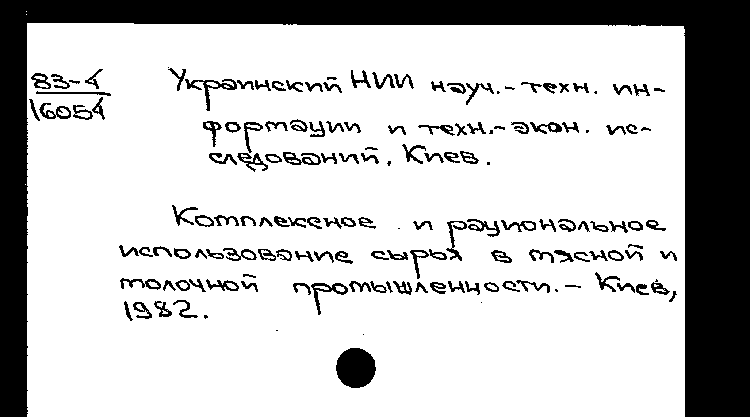 83-4
16054
Украинский НИИ науч.-техн. ин-
формации и техн.-экон. ис-
следований, Киев.
Комплексное и рациональное
использование сырья в мясной и
молочной промышленности.- Киев,
1982.